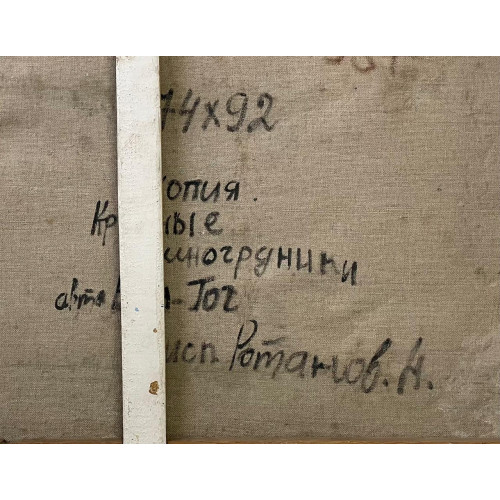 74х92
опия.
Кр ные
иноградники
авт. В -Гог
исп Ротанов. Н.